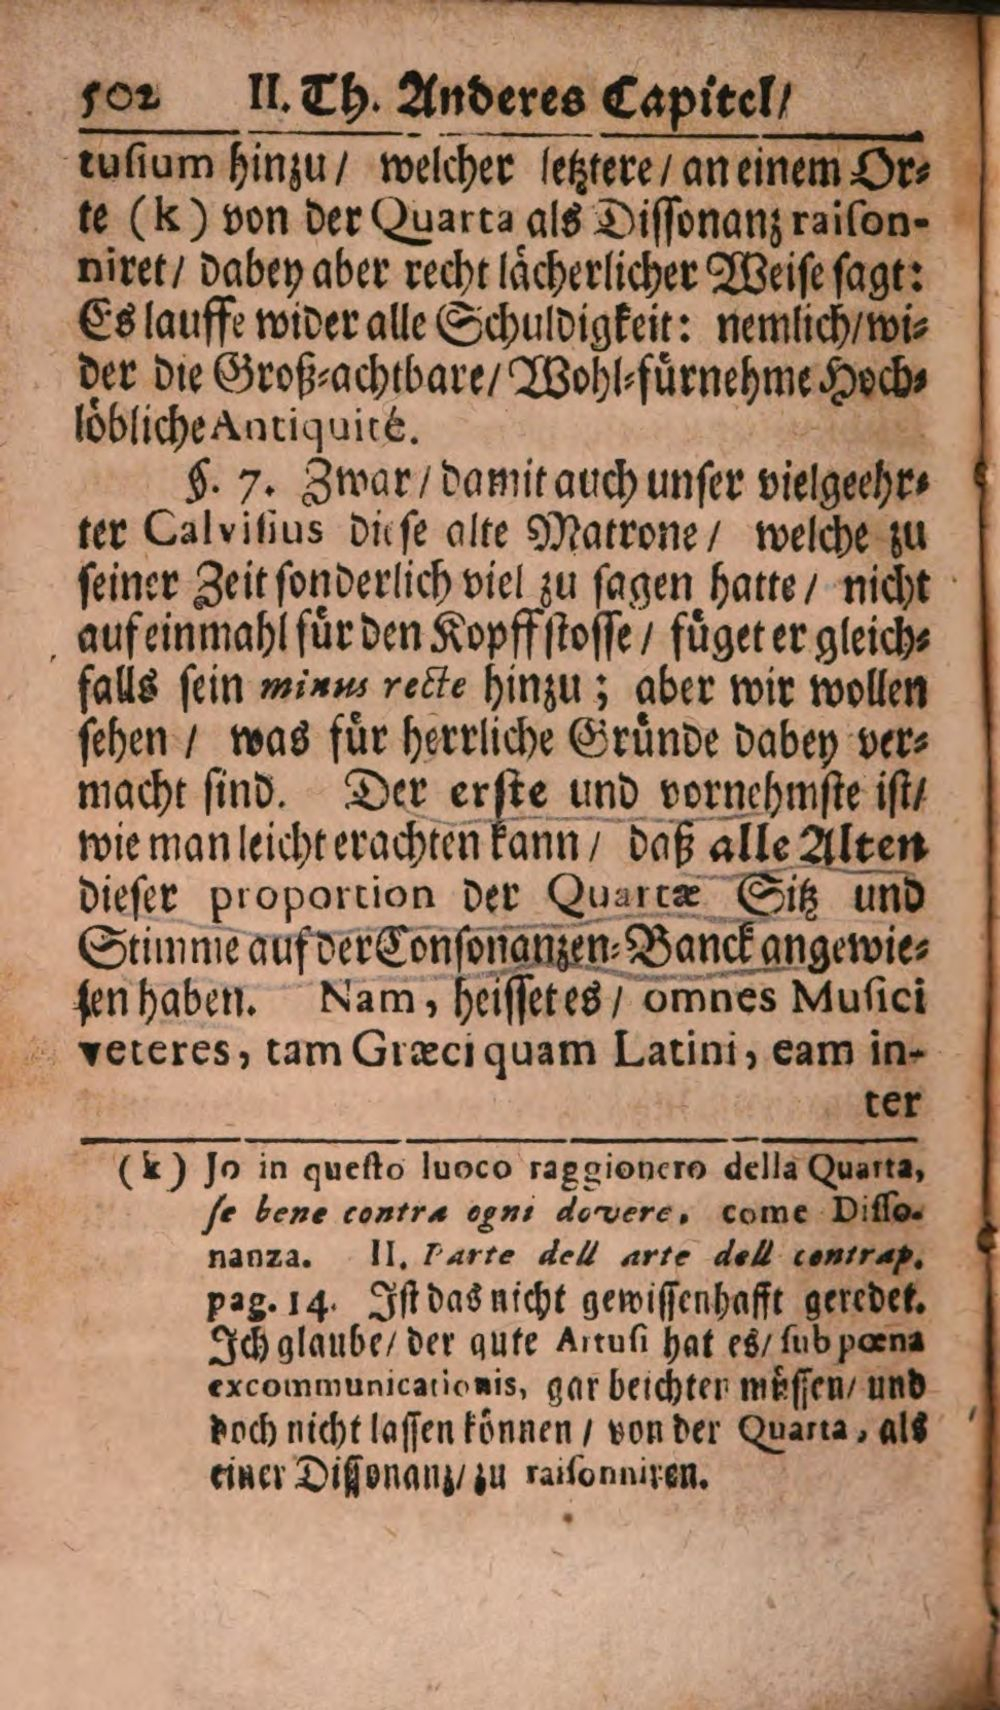 502 II. Th. Anderes Capitel/
tuſium hinzu/ welcher letztere/ an einem Or⸗
te (k) von der Quarta als Diſſonanz raiſon-
niret/ dabey aber recht lächerlicher Weiſe ſagt:
Es lauffe wider alle Schuldigkeit: nemlich/ wi⸗
der die Groß⸗achtbare/ Wohl⸗fürnehme Hoch⸗
löbliche Antiquité.
§. 7. Zwar/ damit auch unſer vielgeehr⸗
ter Calviſius dieſe alte Matrone/ welche zu
ſeiner Zeit ſonderlich viel zu ſagen hatte/ nicht
auf einmahl für den Kopff ſtoſſe/ füget er gleich⸗
falls ſein minus recte hinzu; aber wir wollen
ſehen/ was für herrliche Gründe dabey ver⸗
macht ſind. Der erſte und vornehmſte iſt/
wie man leicht erachten kann/ daß alle Alten
dieſer proportion der Quartæ Sitz und
Stimme auf der Conſonanzen⸗Banck angewie⸗
ſen haben. Nam, heiſſet es/ omnes Muſici
veteres, tam Græci quam Latini, eam in-
ter
(k) Jo in queſto luoco raggionero della Quarta,
ſe bene contra ogni dovere, come Diſſo-
nanza. II. Parte dell arte dell contrap.
pag. 14. Iſt das nicht gewiſſenhafft geredet.
Ich glaube/ der gute Artuſi hat es/ ſub pœna
excommunicationis, gar beichten müſſen/ und
doch nicht laſſen können/ von der Quarta, als
einer Diſſonanz/ zu raiſonniren.